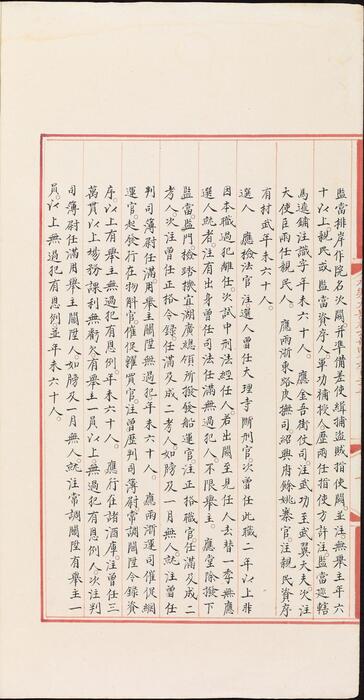 監當排岸作院名次闕并準備差使緝捕盜賊指使闕並注無舉主年六
十以上親民或監當資序人軍功補授人歷兩任指使方許注監當巡轄
馬遞鋪注識字年未六十人。應金吾街仗司注武功至武翼大夫次注
大使臣兩任親民。應兩浙東路安撫司紹興府餘姚寨官注親民資序
有材武年未六十人。
選人 應檢法官注選人曾任大理寺斷刑官次曾任此職二年以上非
因本職過犯離任次試中刑法經任人若出闕至見任人去替一季無應
選人就者注有出身曾任司法任滿無過犯人不限舉主。應堂除撥下
監當監門檢踏機宜湖廣總領所撥發船運官注正格職官任滿及成二
考人次注曾任正格令錄任滿及成二考人如牓及一月無人就注曾任
判司簿尉任滿用舉主關陞無過犯年未六十人。應兩浙運司催促綱
運官起發行在物斛官催促糴買官注曾歷判司簿尉常調關陞令錄資
序以上有舉主無過犯有恩例年未六十人。應行在諸酒庫注曾任三
萬貫以上場務課利無虧欠有舉主一員以上無過犯有恩例人次注判
司簿尉任滿用舉主關陞人如牓及一月無人就注常調關陞有舉主一
員以上無過犯有恩例並年未六十人。